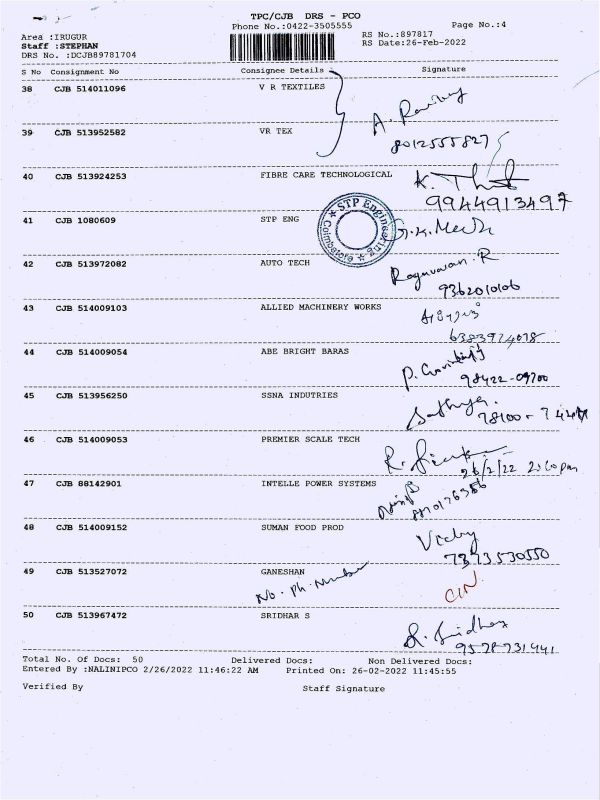 TPC/CJB DRS - PCO
Phone No.:0422-3505555
Page No.:4
Area :IRUGUR
Staff :STEPHAN
DRS No. :DCJB89781704
RS No.:897817
RS Date:26-Feb-2022
S No Consignment No Consignee Details Signature
38 CJB 514011096 V R TEXTILES
39 CJB 513952582 VR TEX
8012555827
40 CJB 513924253 FIBRE CARE TECHNOLOGICAL
9944913497
41 CJB 1080609 STP ENG
STP Engineering Coimbatore
42 CJB 513972082 AUTO TECH
Raguvaran. R
9362010106
43 CJB 514009103 ALLIED MACHINERY WORKS
6383974078
44 CJB 514009054 ABE BRIGHT BARAS
98422-09700
45 CJB 513956250 SSNA INDUTRIES
Sathya.
46 CJB 514009053 PREMIER SCALE TECH
26/2/22
47 CJB 88142901 INTELLE POWER SYSTEMS
48 CJB 514009152 SUMAN FOOD PROD
Vicky
7373530550
49 CJB 513527072 GANESHAN
No. Ph. Number
CIN
50 CJB 513967472 SRIDHAR S
S. Sridhar
9578731441
Total No. Of Docs: 50 Delivered Docs: Non Delivered Docs:
Entered By :NALINIPCO 2/26/2022 11:46:22 AM Printed On: 26-02-2022 11:45:55
Verified By Staff Signature